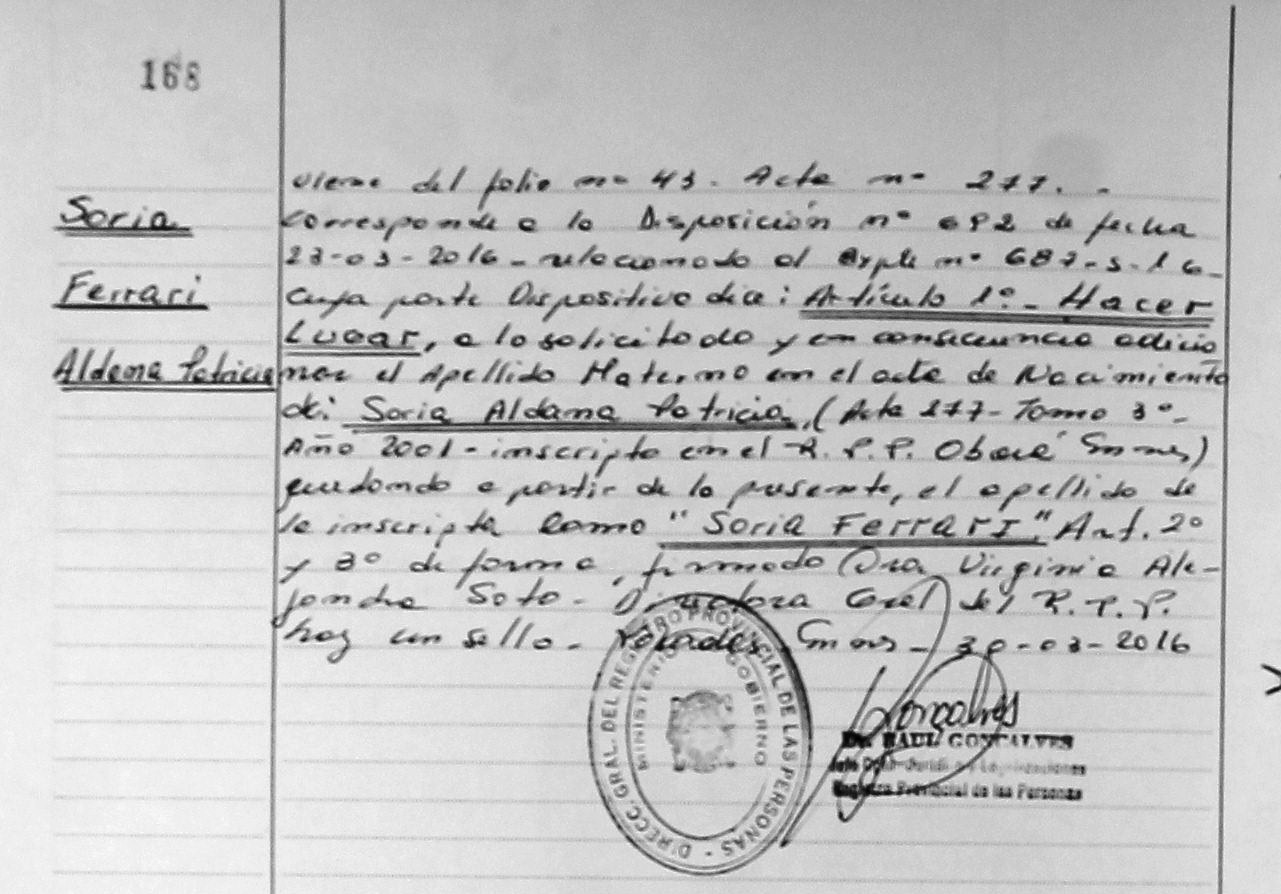 168
Soria
Ferrari
Aldana Patricia
viene del folio nº 43. Acta nº 277. -
corresponde a la Disposición nº 692 de fecha
23-03-2016 - relacionado al Expte nº 687-S-16-
cuya parte Dispositiva dice: Artículo 1º - Hacer
Lugar, a lo solicitado y en consecuencia adicio
nar el Apellido Materno en el acta de Nacimiento
de: Soria Aldana Patricia, (Acta 277 - Tomo 3º -
Año 2001 - inscripta en el R. P. P. Oberá Mnes)
quedando a partir de la presente, el apellido de
la inscripta como "Soria Ferrari". Art. 2º
y 3º de forma, firmado Dra Virginia Ale-
jandra Soto - Directora Gral del R. P. P.
hay un sello - Posadas, Mnes - 30-03-2016
DIRECC. GRAL. DEL REGISTRO PROVINCIAL DE LAS PERSONAS -
MINISTERIO GOBIERNO
Gonçalves
Dr. RAUL GONCALVES
Registro Provincial de las Personas